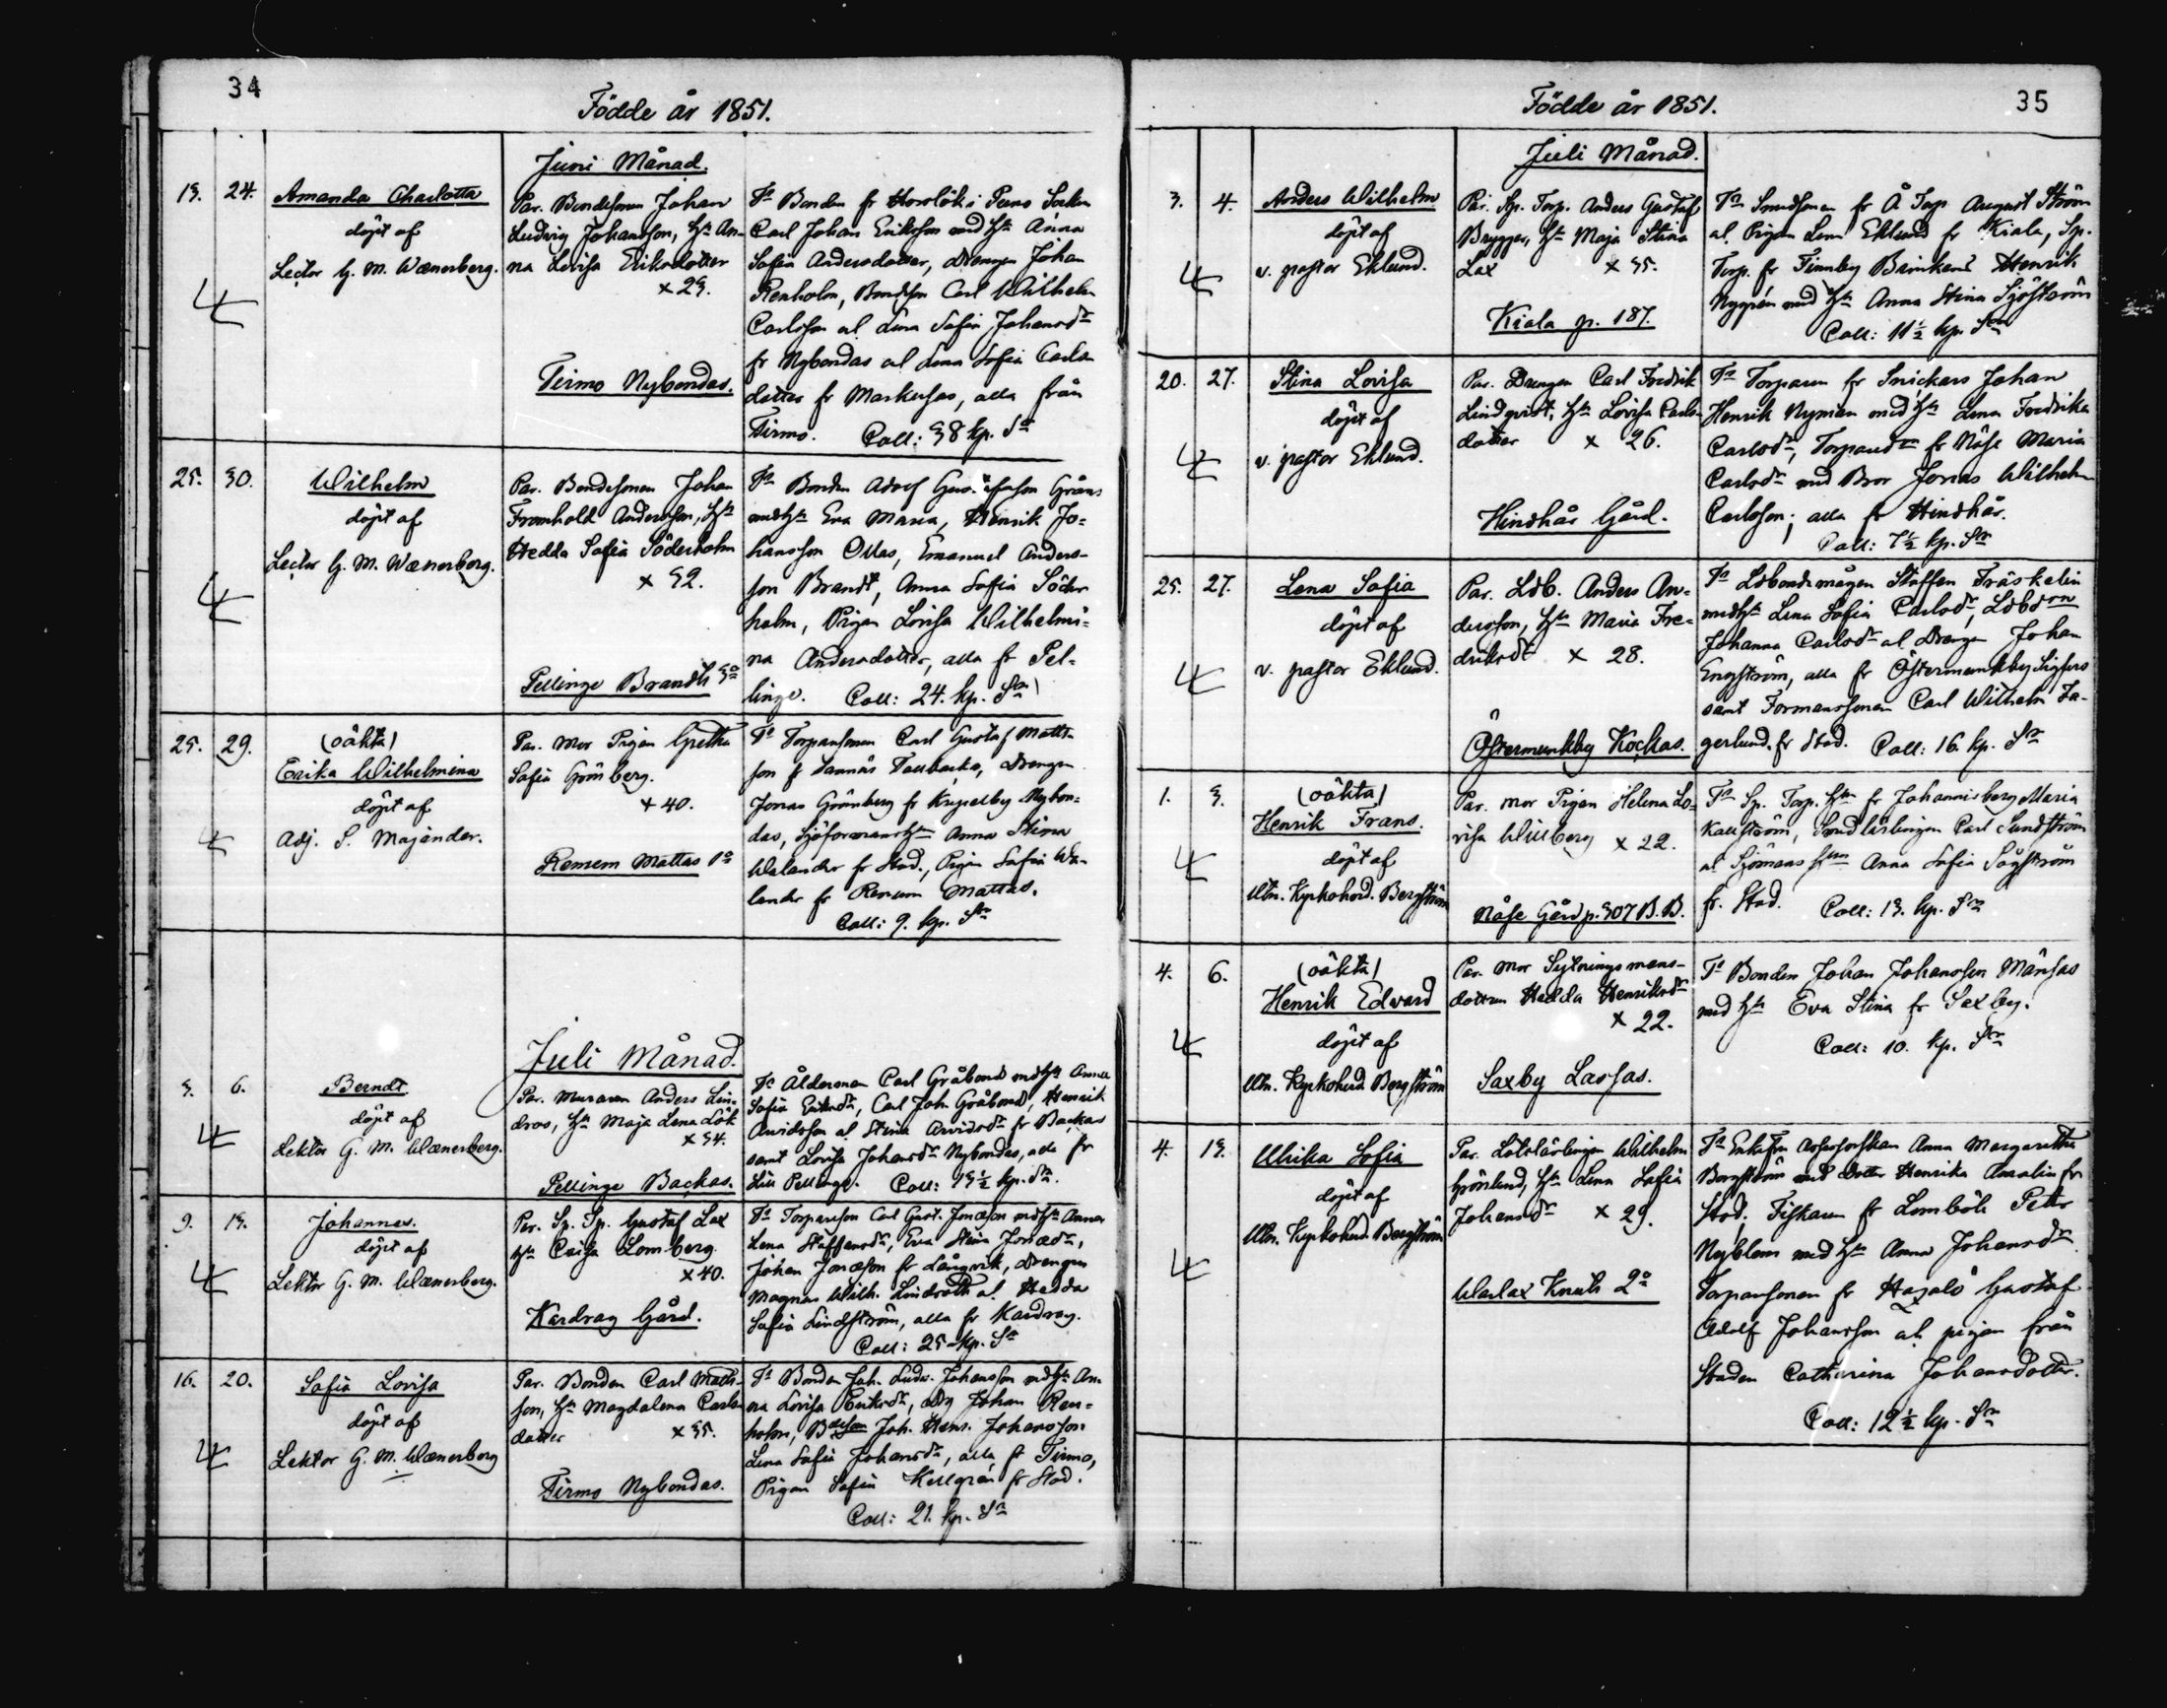 34
Födde år 1851.
Juni Månad.
13. 24. Amanda Charlotta
döpt af
Lector G. M. Wænerberg.
Par. Bondesonen Johan
Ludvig Johansson, H:n An-
na Lovisa Eriksdotter
x 23.
Tirmo Nybondas.
F:r Bonden fr Horslök i Perno Socken
Carl Johan Eriksson med H:n Anna
Sofia Andersdotter, Drengen Johan
Renholm, Bondeson Carl Wilhelm
Carlsson al Lena Sofia Johansd:r
fr Nybondas al Lena Sofia Carls-
dotter fr Markusas, alla från
Tirmo. Coll: 38 kp. S:r
25. 30. Wilhelm
döpt af
Lector G. M. Wænerberg.
Par. Bondesonen Johan
Fromhold Andersson, H:n
Hedda Sofia Söderholm
x 32.
Pellinge Brandts 3:o
F:r Bonden Adolf Gustafsson Gråns
med H:n Eva Maria, Henrik Jo-
hansson Ollas, Emanuel Anders-
son Brandt, Anna Sofia Söder
holm, Pigan Lovisa Wilhelmi-
na Andersdotter, alla fr Pel-
linge. Coll: 24. kp. S:r
25. 29. (oäkta)
Erika Wilhelmina
döpt af
Adj. S. Majander.
Par. Mor Pigan Gretha
Sofia Grönberg.
x 40.
Renum Mattas 1:o
F:r Torparesonen Carl Gustaf Matts-
son f Tallbacka, Drengen
Jonas Grönberg fr Kripelby Nybon-
das, Sjöformansh:n Anna Stina
Walander fr Stad., Pigan Sofia Wa-
lander fr Renum Mattas.
Coll: 9. kp. S:r
Juli Månad.
3. 6. Berndt
döpt af
Lektor G. M. Wænerberg.
Par. Muraren Anders Lin-
droos, H:n Maja Lena Lök
x 34.
Pellinge Backas.
F:r Ålderman Carl Gråbond med H:n Anna
Sofia Eriksd:r, Carl Joh. Gråbond, Henrik
Arvidsson al Stina Arvidsd:r fr Backas
samt Lovisa Johansd:r Nybondas, alla fr
Lill Pellinge. Coll: 13½ kp. S:r.
9. 13. Johannes.
döpt af
Lektor G. M. Wænerberg.
Par. Sp. Tp. Gustaf Lax
H:n Caisa Lomberg.
x 40.
Kardrag Gård.
F:r Torpareson Carl Gust. Jonasson med H:n Anna
Lena Staffansd:r, Eva Stina Jonasd:r,
Johan Jonasson fr Långvik, Drengen
Magnus Wilh. Lindroth al Hedda
Sofia Lindström, alla fr Kardrag.
Coll: 25 kp. S:r
16. 20. Sofia Lovisa
döpt af
Lektor G. M. Wænerberg
Par. Bonden Carl Matts-
son, H:n Magdalena Carls-
dotter x 35.
Tirmo Nybondas.
F:r Bonden Joh. Ludv. Johansson med H:n An-
na Lovisa Eriksd:r, Johan Ren-
holm, Bdeson Joh. Henr. Johansson
Lena Sofia Johansd:r, alla fr Tirmo,
Pigan Sofia Kellgrén fr Stad.
Coll: 21. kp. S:r
Födde år 1851.
35
Juli Månad.
3. 4. Anders Wilhelm
döpt af
v. pastor Eklund.
Par. Sp. Torp. Anders Gustaf
Brygger, H:n Maja Stina
Lax x 35.
Kiala p. 187.
F:r Smedsonen fr Å Torp August Ström
al Pigan Lena Eklund fr Kiala, Sp.
Torp. fr Finnby Brinkens Henrik
Nygrén med H:n Anna Stina Sjöström
Coll: 11½ kp. S:r
20. 27. Stina Lovisa
döpt af
v. pastor Eklund.
Par. Drengen Carl Fredrik
Lindqvist, H:n Lovisa Carls-
dotter x 26.
Hindhår Gård.
F:r Torparen fr Snickars Johan
Henrik Nyman med H:n Lena Fredrika
Carlsd:r, Torpared:n fr Näse Maria
Carlsd:r med Bror Jonas Wilhelm
Carlsson; alla fr Hindhår.
Coll: 7½ kp. S:r
25. 27. Lena Sofia
döpt af
v. pastor Eklund.
Par. Ldb. Anders An-
dersson, H:n Maria Fre-
driksd:r x 28.
Östermunkby Kockas.
F:r Ldbondemågen Staffan Träskelin
med H:n Lena Sofia Carlsd:r, Ldbd:on
Johanna Carlsd:r al Drengen Johan
Engström, alla fr Östermunkby Sigfers
samt Formanssonen Carl Wilhelm Fa-
gerlund. fr Stad. Coll: 16. kp. S:r
1. 3. (oäkta)
Henrik Frans.
döpt af
Utn. Kyrkoherd. Bergström
Par. Mor Pigan Helena Lo-
visa Willberg x 22.
Näse Gård p. 307 B. B.
F:r Sp. Torp. H:n fr Johannisberg Maria
Kallström, Smedlärlingen Carl Sundström
al Sjömans H:n Anna Sofia Sågström
fr. Stad. Coll: 13. kp. S:r
4. 6. (oäkta)
Henrik Edvard
döpt af
Utn. Kyrkoherd. Bergström
Par. Mor Sytningsmans-
dottren Hedda Henriksd:r
x 22.
Saxby Lassas.
F:r Bonden Johan Johansson Månsas
med H:n Eva Stina fr Saxby.
Coll: 10. kp. S:r
4. 13. Ulrika Sofia
döpt af
Utn. Kyrkoherd. Bergström
Par. Lotslärlingen Wilhelm
Grönlund, H:n Lena Sofia
Johansd:r x 29.
Warlax Knuts 2:o
F:r Enkefru Assessorskan Anna Margaretha
Bergström med Dotter Henrika Amalia fr
Stad; Fiskaren fr Lomböle Petter
Nyblom med H:n Anna Johansd:r
Torparesonen fr Hasalö Gustaf
Adolf Johansson al. pigan från
Staden Catharina Johansdotter.
Coll: 12½ kp. S:r